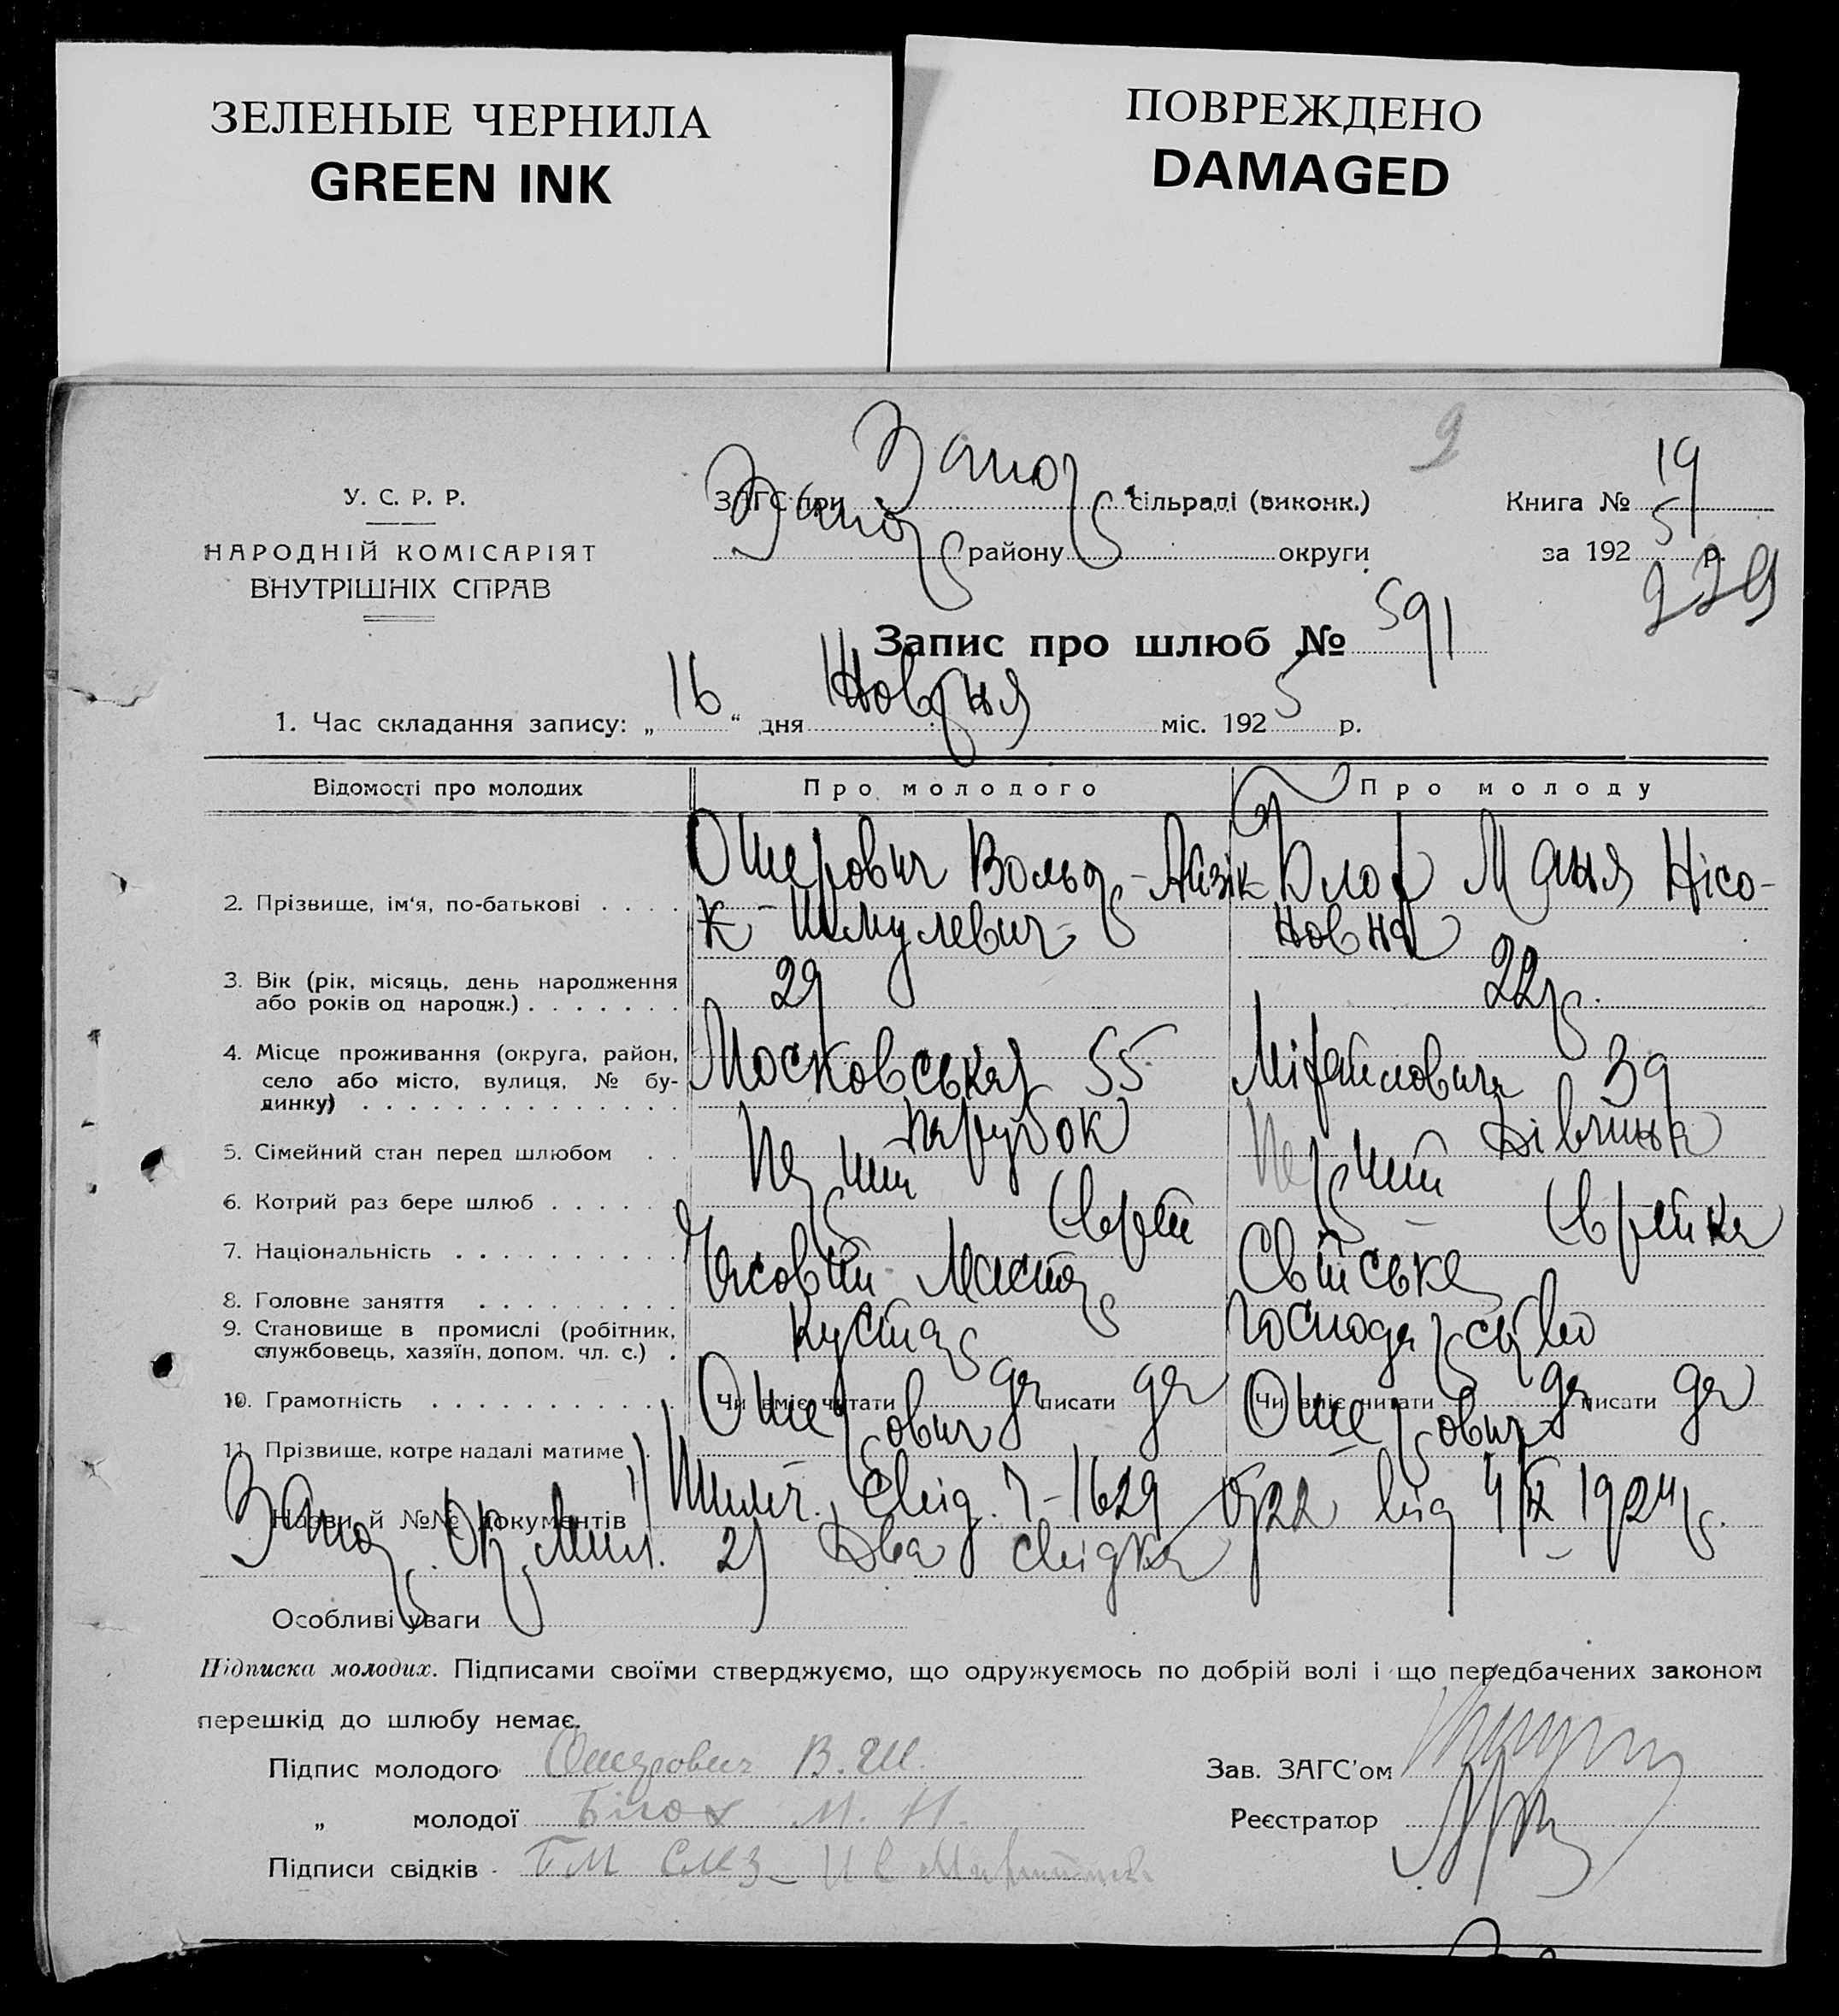 ЗЕЛЕНЫЕ ЧЕРНИЛА
GREEN INK
ПОВРЕЖДЕНО
DAMAGED
9
У. С. Р. Р.
НАРОДНІЙ КОМІСАРІЯТ
ВНУТРІШНІХ СПРАВ
ЗАГС при Запор. сільраді (виконк.)
Запор району округи
Книга № 19
за 1925 р.
229
Запис про шлюб № 591
1. Час складання запису: „16“ дня Новбря міс. 1925 р.
Відомості про молодих Про молодого Про молоду
2. Прізвище, ім‘я, по-батькові . . . . Ошерович Вольф-Айзік Блох Маня Нісо-
к-Шмулевич новна
3. Вік (рік, місяць, день народження
або років од народж.) . . . . . . . 29 22р.
4. Місце проживання (округа, район,
село або місто, вулиця, № бу-
динку) . . . . . . . . . . . . . . Московська 55 Міхайловича 39
5. Сімейний стан перед шлюбом . . парубок Дівчина
6. Котрий раз бере шлюб . . . . . Перший Перший
7. Національність . . . . . . . . . Єврей Єврейка
8. Головне заняття . . . . . . . . . Часовий Майстр Свійське
9. Становище в промислі (робітник,
службовець, хазяїн, допом. чл. с.) . Кустар господарство
10. Грамотність . . . . . . . . . . . Чи вміє читати да писати да Чи вміє читати да писати да
11. Прізвище, котре надалі матиме . Ошерович Ошерович
Назви й №№ документів 1) Шлюб. Свід. 7-1629 від 4/IX 1924р.
Запор. Ок. Міл. 2) Два свідка
Особливі уваги
Підписка молодих. Підписами своїми стверджуємо, що одружуємось по добрій волі і що передбачених законом
перешкід до шлюбу немає.
Підпис молодого Ошерович В. Ш.
„ молодої Блох М. Н.
Підписи свідків
Зав. ЗАГС'ом
Реєстратор